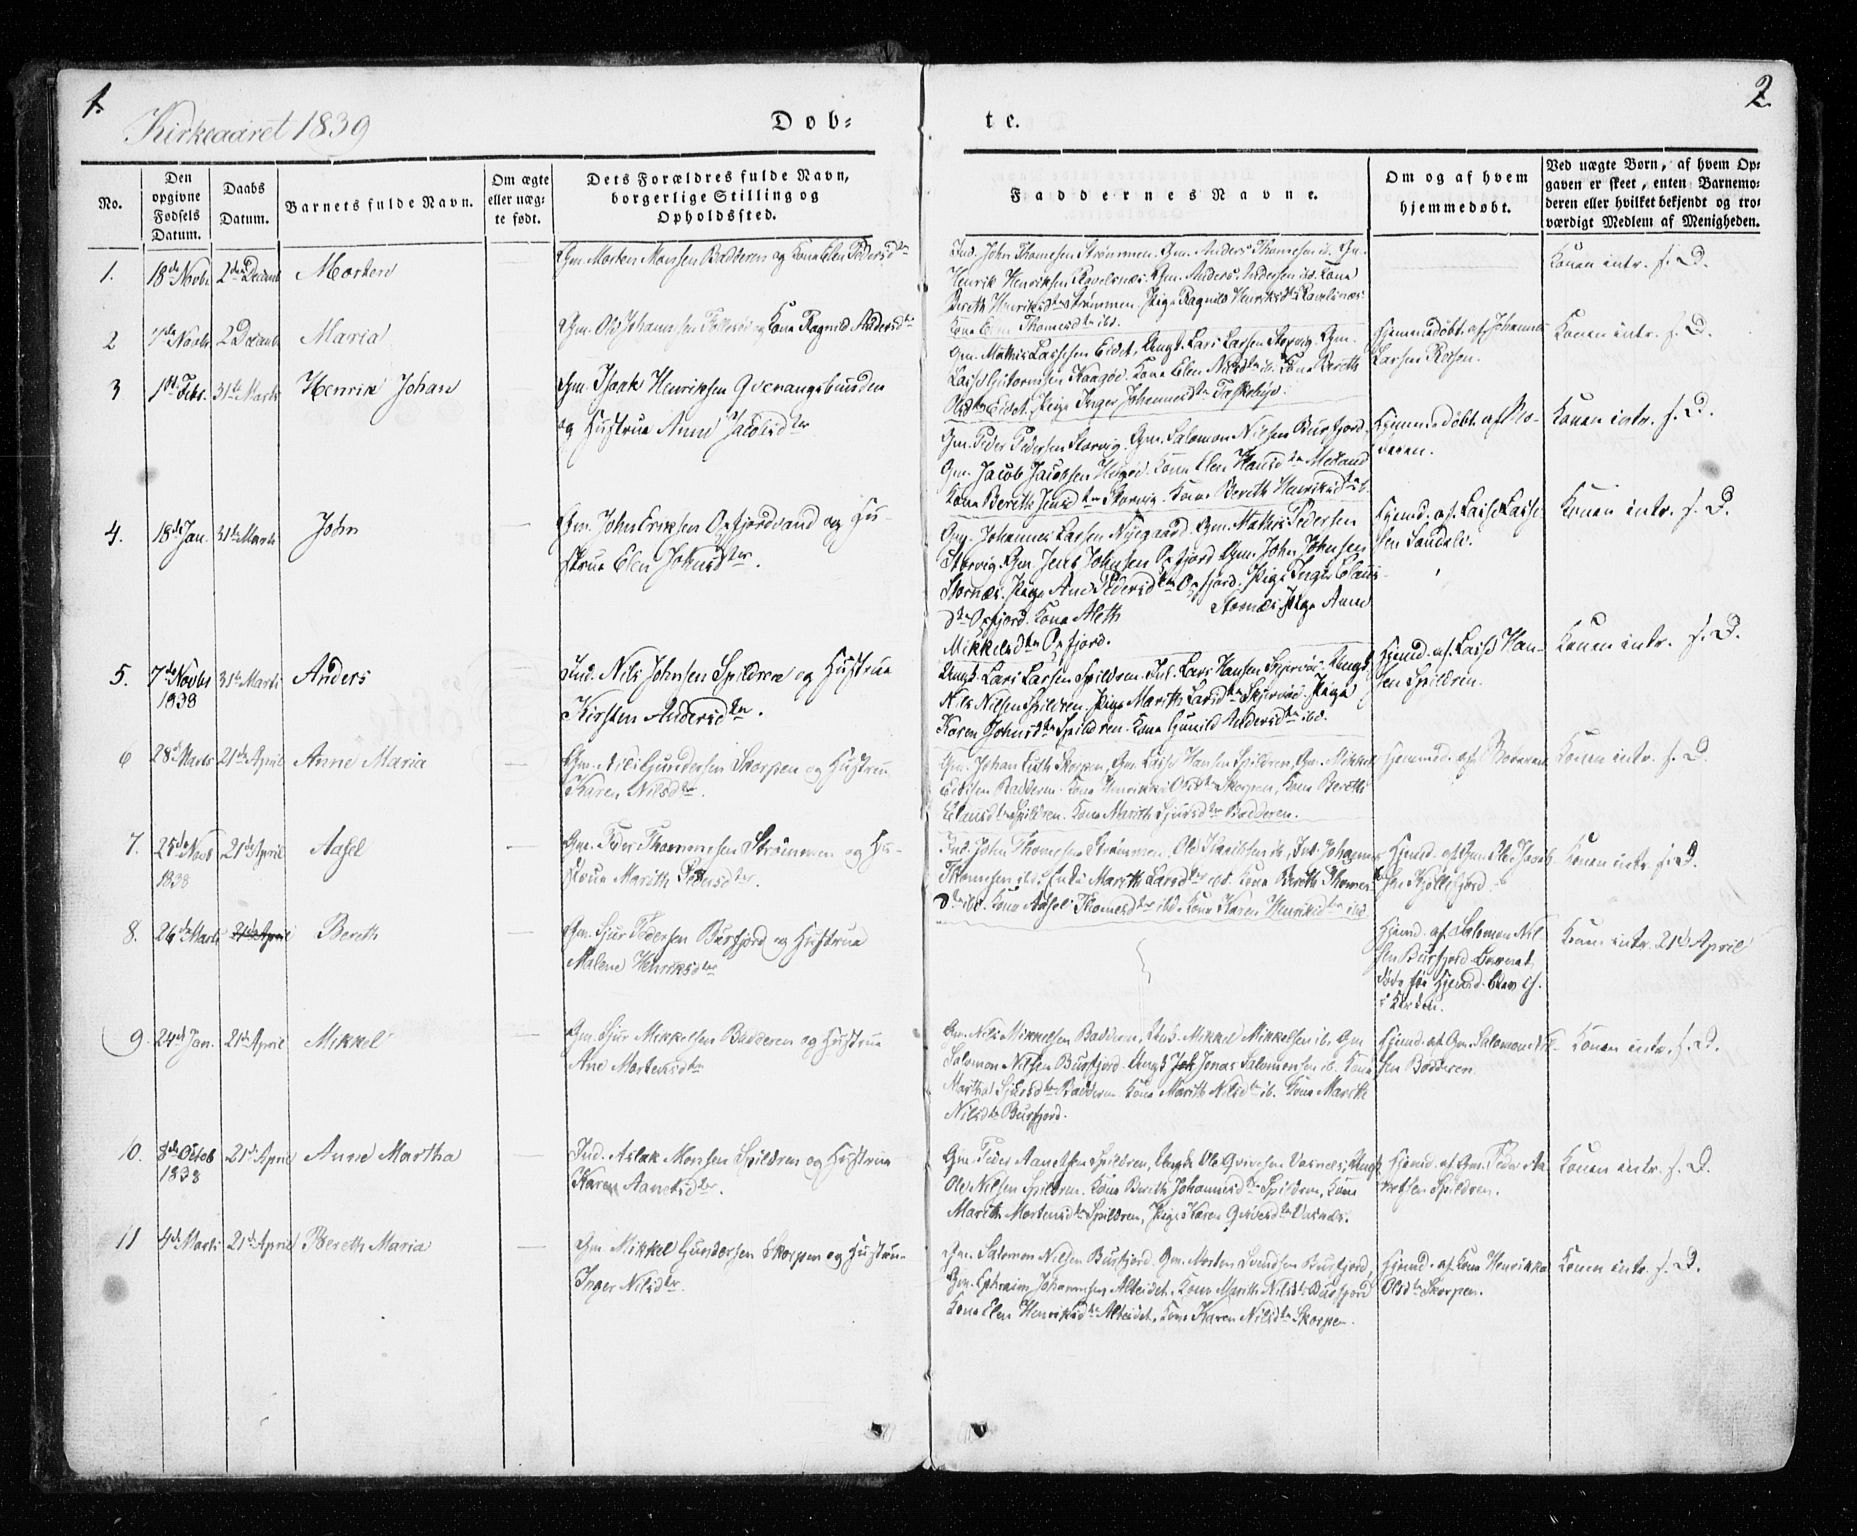 1.
2.
Kirkeaaret 1839
Døb-
te.
No.
Den opgivne Fødsels Datum.
Daabs Datum.
Barnets fulde Navn.
Om ægte eller uægte født.
Dets Forældres fulde Navn, borgerlige Stilling og Opholdssted.
Faddernes Navne.
Om og af hvem hjemmedøbt.
Ved uægte Børn, af hvem Opgaven er skeet, enten Barnemoderen eller hvilket bekjendt og troværdigt Medlem af Menigheden.
1. 18de Novbr 2den Decemb Morten
Gm. Morten Monsen Badderen og Kona Elen Pedersdtr
Ind. John Thomesen Strømmen. Gm. Anders Thomesen ib. Gm.
Henrik Henriksen Ravelsnæs. Gm. Anders Andersen ib. Kona
Bereth Henriksdtr Strømmen. Pige Ragnild Henriksdtr Ravelsnæs
Kona Elen Thomesdtr ibd.
Konen intr. s. D.
2 Novbr 2 Decemb Maria
Gm. Ole Johannesen og Kona Ragnild Andersdtr
Gm. Mathis Lassesen Eidet, Ungk. Lars Larsen Storvig. Gm.
Kaagøe. Kona Elen Nilsdtr ib. Kona Bereth
Olsdtr Eidet. Pige Inger Johannesdtr
Hjemmedøbt af Johannes
Larsen
Konen intr. s. D.
3 1ste Febr. 31te Marts Henrik Johan
Gm. Isaak Henriksen Qvenangsbunden
og Hustrue Anne Jacobsdtr
Gm. Peder Pedersen Storvig. Gm. Salomon Nilsen Burfjord
Gm. Jacob Jacobsen Kona Elen Hansdtr
Kona Bereth Jensdtr Storvig. Kona Bereth Henriksdtr ib.
Hjemmedøbt af Mo-
deren.
Konen intr. s. D.
4. 18de Jan. 31te Marts John
Gm. John Eriksen Oxfjordvand og Hu-
strue Elen Johnsdtr.
Gm. Johannes Larsen Nyegaard. Gm. Mathis Pedersen
Storvig. Gm. Jens Johnsen Oxfjord. Gm. John Johnsen
Stornæs. Pige Ane Pedersdtr Oxfjord. Pige Inger
dtr Oxfjord. Kona Aleth Stornæs. Pige Anne
Mikkelsdtr Oxfjord.
Hjemd. af Lasse Lasse-
sen Sandeli.
Konen intr. s. D.
5. 7de Novbr 1838 31te Marts Anders
Ind. Nils Johnsen Spildren og Hustrue
Kirsten Andersdtr.
Ungk. Lars Larsen Spildren. Ind. Lars Hansen Skjervøe. Ungk.
Nils Nilsen Spildren. Pige Marith Larsdtr Skjervøe. Pige
Karen Johnsdtr Spildren. Kona Gunild Andersdtr ibd.
Hjemd. af Lasse Han-
sen Spildren.
Konen intr. s. D.
6 28de Marts 21de April Anne Maria
Gm. Nils Gundersen Skorpen og Hustrue
Karen Nilsdtr.
Gm. Johan Skorpen, Gm. Lasse Hansen Spildren, Gm. Mikkel
Badderen. Kona Henrikke Olsdtr Skorpen, Kona Bereth
Spildren. Kona Marith Sjursdtr Badderen.
Hjemmed. af
Konen intr. s. D.
7. 25de Novb 1838 21de April Aasel
Gm. Peder Thomesen Strømmen og Hu-
strue Marith Pedersdtr.
Ind. John Thomesen Strømmen. Ole ib, Ind. Johannes
Thomesen ibd. Enke Marith Larsdtr ibd. Kona Bereth Thomes-
dtr ibd. Kona Aasel Thomesdtr ibd. Kona Karen Henriksdtr ibd
Hjemd. af Gm.
Konen intr. s. D.
8. 26de Marts 21de April Bereth
Gm. Sjur Pedersen Burfjord og Hustrue
Malene Henriksdtr
Hjemd. af Salomon Nil-
sen Burfjord. Barnet
døde før
i Kirken.
Konen intr. 21de April
9. 24de Jan. 21de April Mikkel
Gm. Sjur Mikkelsen Badderen og Hustrue
Ane Mortensdtr
Gm. Nils Mikkelsen Badderen, Ungk. Mikkel Mikkelsen ib. Gm
Salomon Nilsen Burfjord. Ungk Jonas Salomonsen ib. Kona
Martha Sjursdtr Badderen. Kona Marith Nilsdtr ib. Kona Marith
Nilsdtr Burfjord.
Hjemd. af Gm. Salomon Nil-
sen Badderen.
Konen intr. s. D.
10. 8de Octob 1838 21de April Anne Martha
Ind. Aslak Monsen Spildren og Hustrue
Karen Aanetsdtr.
Gm. Peder Aanetsen Spildren, Ungk Ole Qvivesen Vasnæs, Ungk
Ole Nilsen Spildren. Kona Bereth Johannesdtr Spildren, Kona
Marith Mortensdtr Spildren, Pige Karen Qvivesdtr Vasnæs.
Hjemd. af Gm. Peder Aa-
netsen Spildren.
Konen intr. s. D.
11 4de Marts 21de April Bereth Maria
Gm Mikkel Gundersen Skorpen og Hustrue
Inger Nilsdtr.
Gm. Salomon Nilsen Burfjord. Gm. Morten Svendsen Burfjord,
Gm. Ephraim Johannesen Alteidet. Kona Marith Nilsdtr Burfjord
Kona Elen Henriksdtr Alteidet, Kona Karen Nilsdtr Skorpen.
Hjemd. af Kona Henrikke
Olsdtr Skorpen.
Konen intr. s. D.